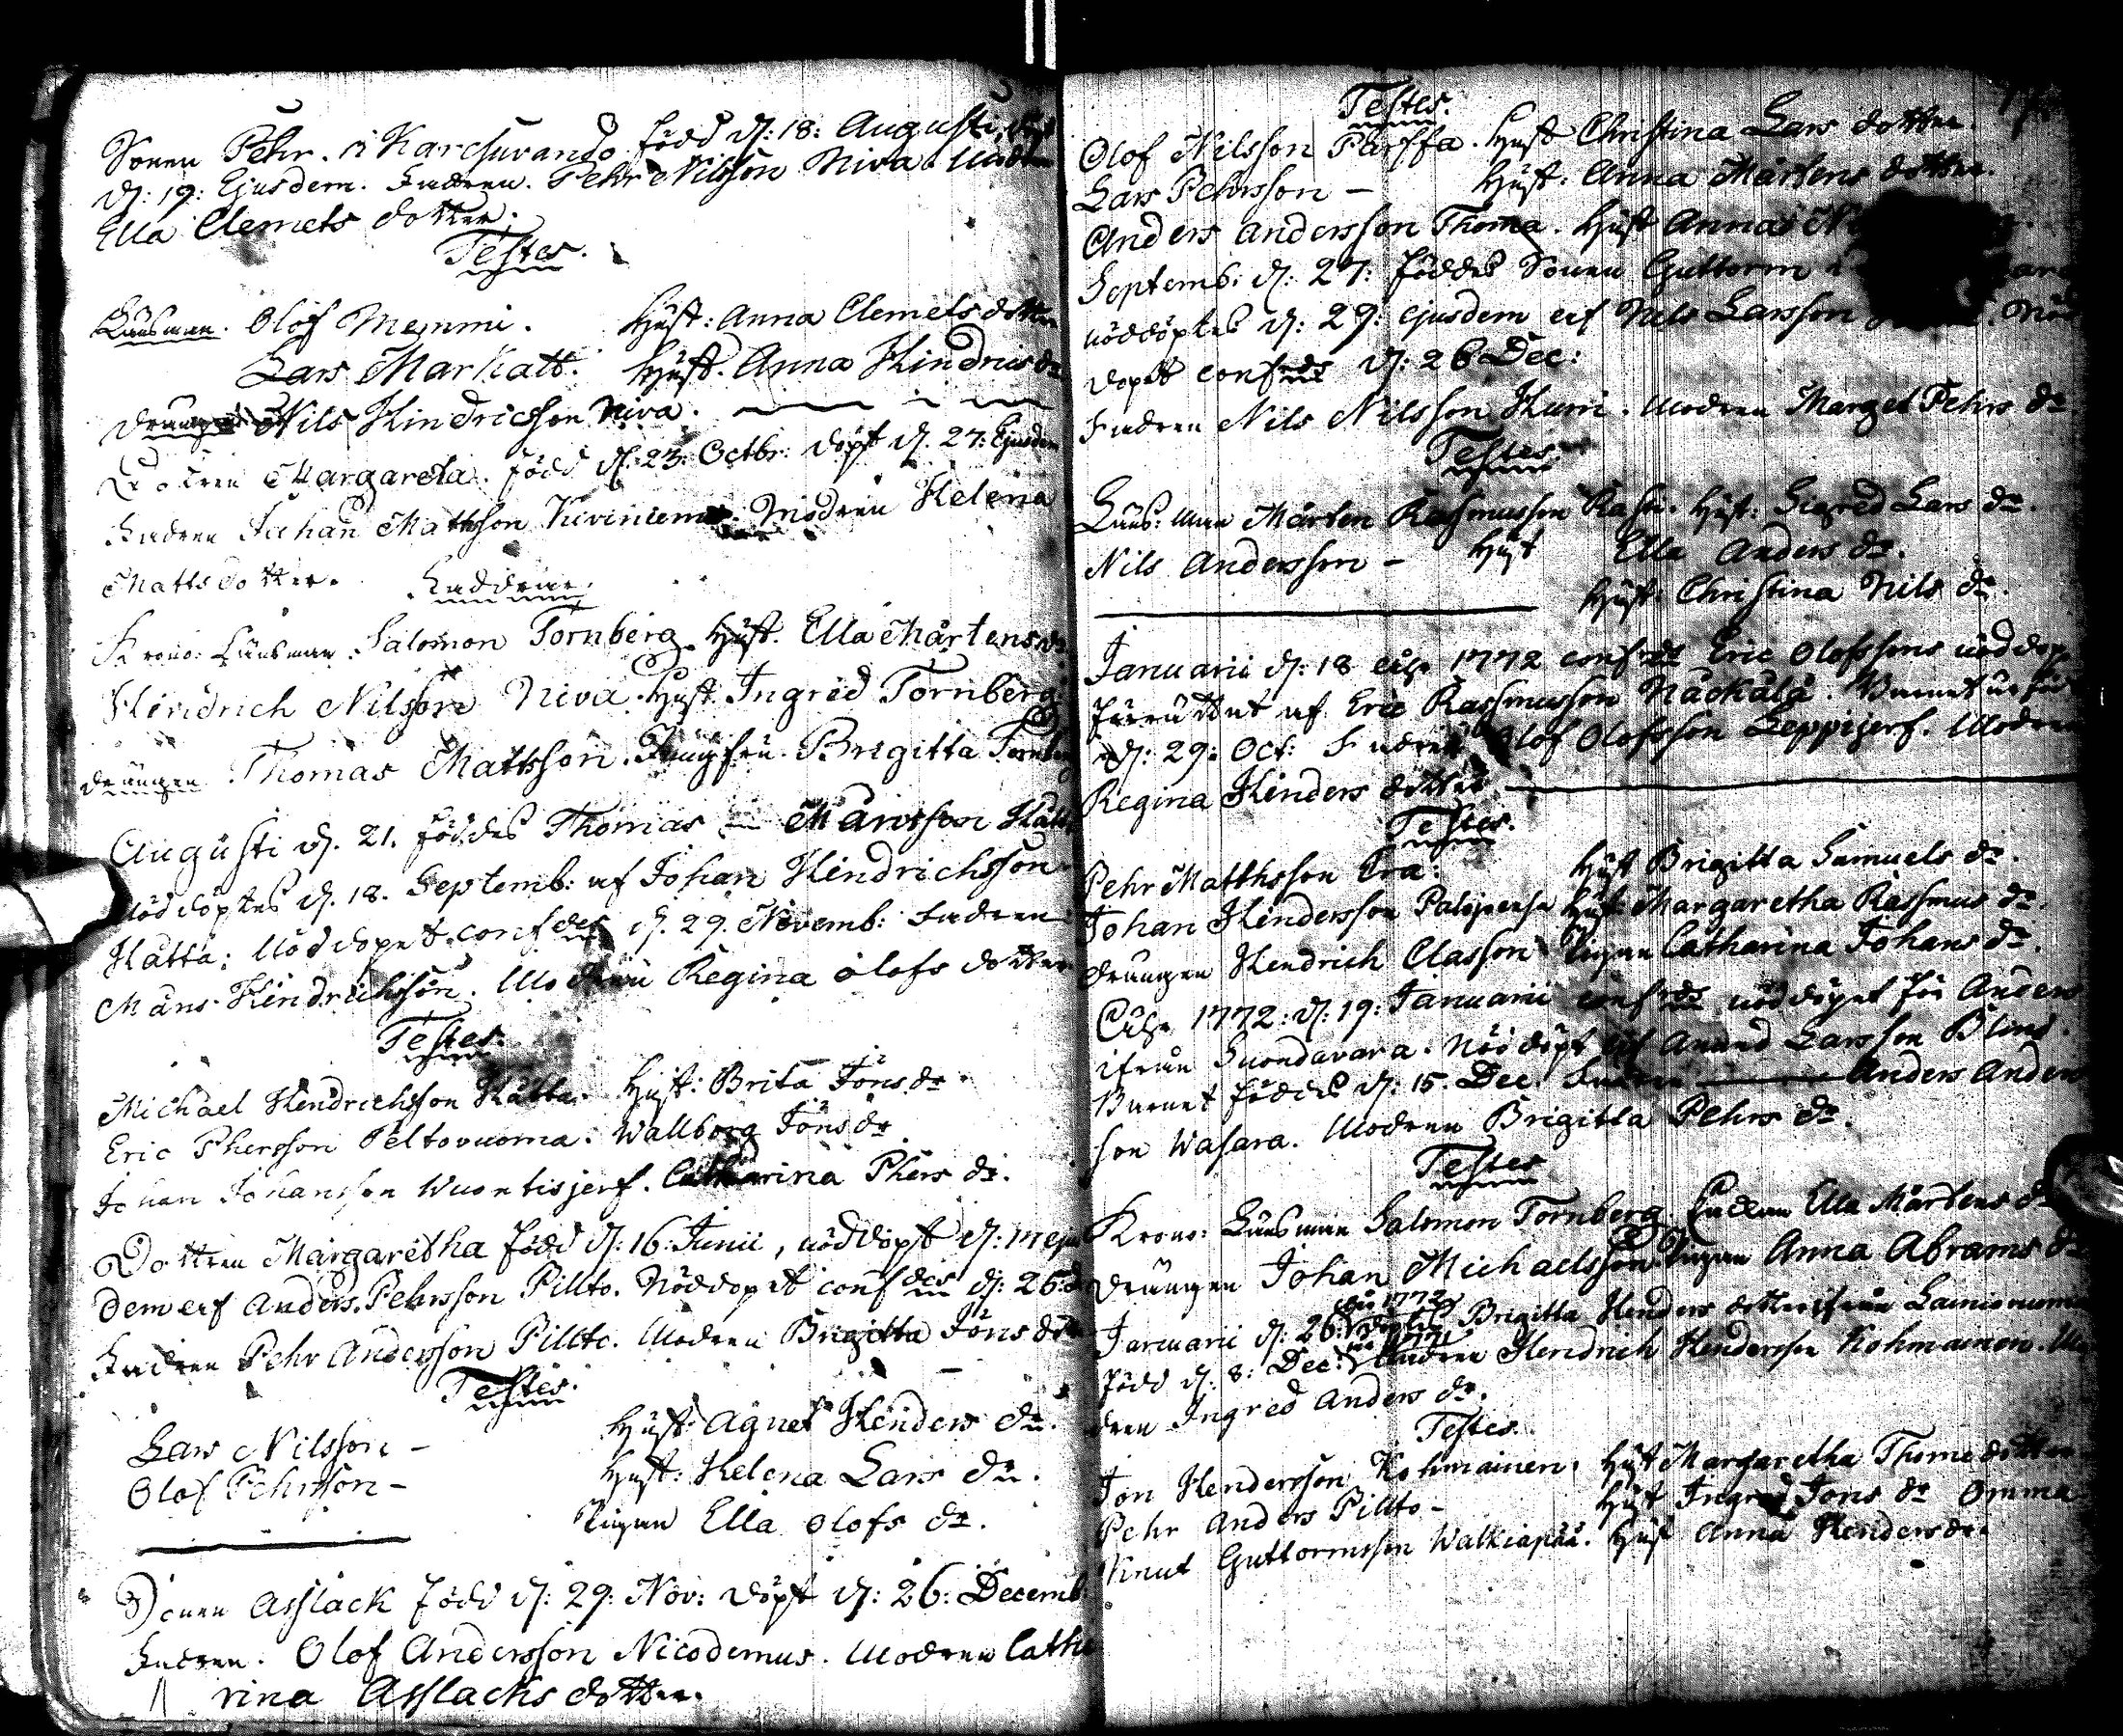 Sonen Pehr. i Karesuvando född d: 18: Augusti, döpt
d: 19: Ejusdem. Fadren. Pehr Nilsson Niva. Modren
Ella Clemets dotter.
Testes.
Länsman. Olof Memmi. Hust: Anna Clemets dotter
Lars Markatt. Hust. Anna Hindrics dr
drängen Nils Hindricsson Niva.
Dottren Margareta. född d. 23. Octbr. döpt d. 27: Ejusdem
Fadren Johan Mattsson Kiviniemi. Modren Helena
Matts dotter. Faddrar.
Krono: Länsman. Salomon Tornberg. Hust. Ella Mårtens dr
Hindrich Nilsson Niva. Hust Ingrid Tornberg
drängen Thomas Mattsson. Jungfru. Brigitta Tornberg
Augusti d. 21. föddes Thomas Månsson Hatta
Nöddöptes d. 18. Septemb: af Johan Hindrichsson
Hatta: Nöddopet confdes d. 29. Novemb: Fadren
Måns Hindrichsson. Modren Regina Olofs dotter
Testes.
Michael Hendrichsson Hatta. Hust: Brita Jöns dr.
Eric Phersson Peltovuoma. Wallborg Jöns dr
Johan Johansson Wuontisjerf. Catharina Phers dr.
Dottren Margaretha född d: 16: Junii, nöddöpt d: 17 ejus
dem af Anders Pehrsson Pillto. Nöddopet confdes d: 26: d
Fadren Pehr Andersson Pillto. Modren Brigitta Jöns dr
Testes.
Lars Nilsson - Hust: Agnet Henders dr.
Olof Pehrsson - Hust: Helena Lars dr.
Pigan Ella Olofs dr.
Sonen Asslack född d: 29: Nov: döpt d: 26: Decemb
Fadren. Olof Andersson Nicodemus. Modren Catha
rina Asslacks dotter.
Testes.
Olof Nilsson Parffa. Hust Christina Lars dotter.
Lars Pehrsson - Hust: Anna Mårtens dotter.
Anders Andersson Thoma. Hust Annas
Septemb: d: 27: föddes Sonen Guttorm
nöddöptes d: 29: ejusdem af Nils Larsson Nöd
dopet confdes d: 26 Dec:
Fadren Nils Nilsson Hurri. Modren Marget Pehrs dr
Testes
Läns: man Mårten Rasmusson Rasti. Hust: Sigred Lars dr.
Nils Andersson - Hust Ella Anders dr.
Hust: Christina Nils dr.
Januarii d: 18 1772 confdes Eric Olofssons nöddop
förrättat af Eric Rassmusson Näckälä. Barnet är född
d: 29: Oct: Fadren Olof Olofsson Leppijerf. Modren
Regina Henders dotter
Testes.
Pehr Matthsson Hust Brigitta Samuels dr.
Johan Hendersson Palojensu Hust Margaretha Rassmus dr.
drängen Hendrich Classon Pigan Catharina Johans dr.
1772: d: 19: Januarii confdes nöddopet för Anders
ifrån Suondavara. Nöddöpt af Amund Larsson Blind.
Barnet föddes d: 15. Dec: Fadren Anders Anders
son Wasara. Modren Brigitta Pehrs dr.
Testes
Krono: Länsman Salomon Tornberg. Ella Mårtens dr
drängen Johan Michaelsson. Pigan Anna Abrams dr
1772
Januarii d: 26: döptes Brigitta Henders dotter ifrån Lainio
1771
född d: 8: Dec: Fadren Hendrich Hendersson Kohmainen. Mo
dren Ingred Anders dr.
Testes.
Jon Hendersson Kohmainen. Hust Margaretha Thome dotter
Pehr Anders Pillto - Hust Ingred Jons dr Omma
Knut Guttormsson Walkiapää. Hust Anna Henders dr.